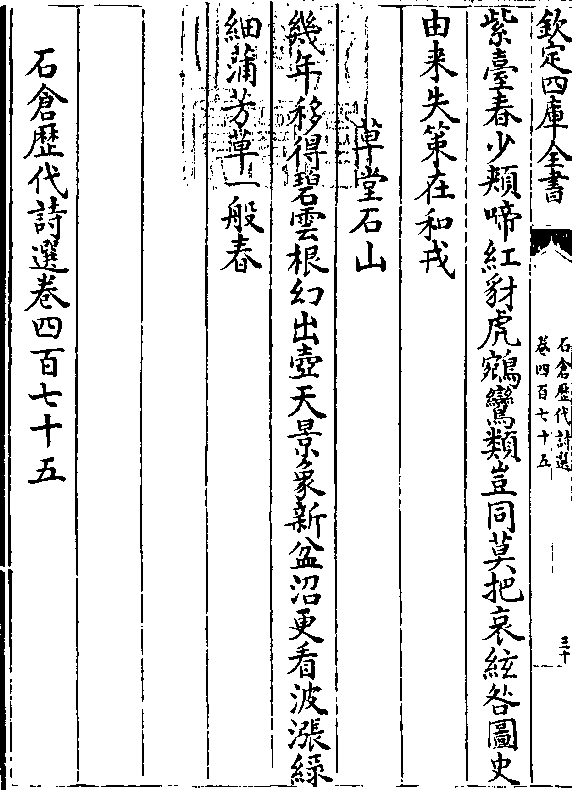 欽定四庫全書
石倉歴代詩選
卷四百七十五
三十
紫臺春少頬啼紅豺虎鵷鸞類豈同莫把哀絃咎圖史
由来失策在和戎
草堂石山
幾年移得碧雲根幻出壺天景象新盆沼更看波漲緑
細蒲芳草一般春
石倉歴代詩選卷四百七十五